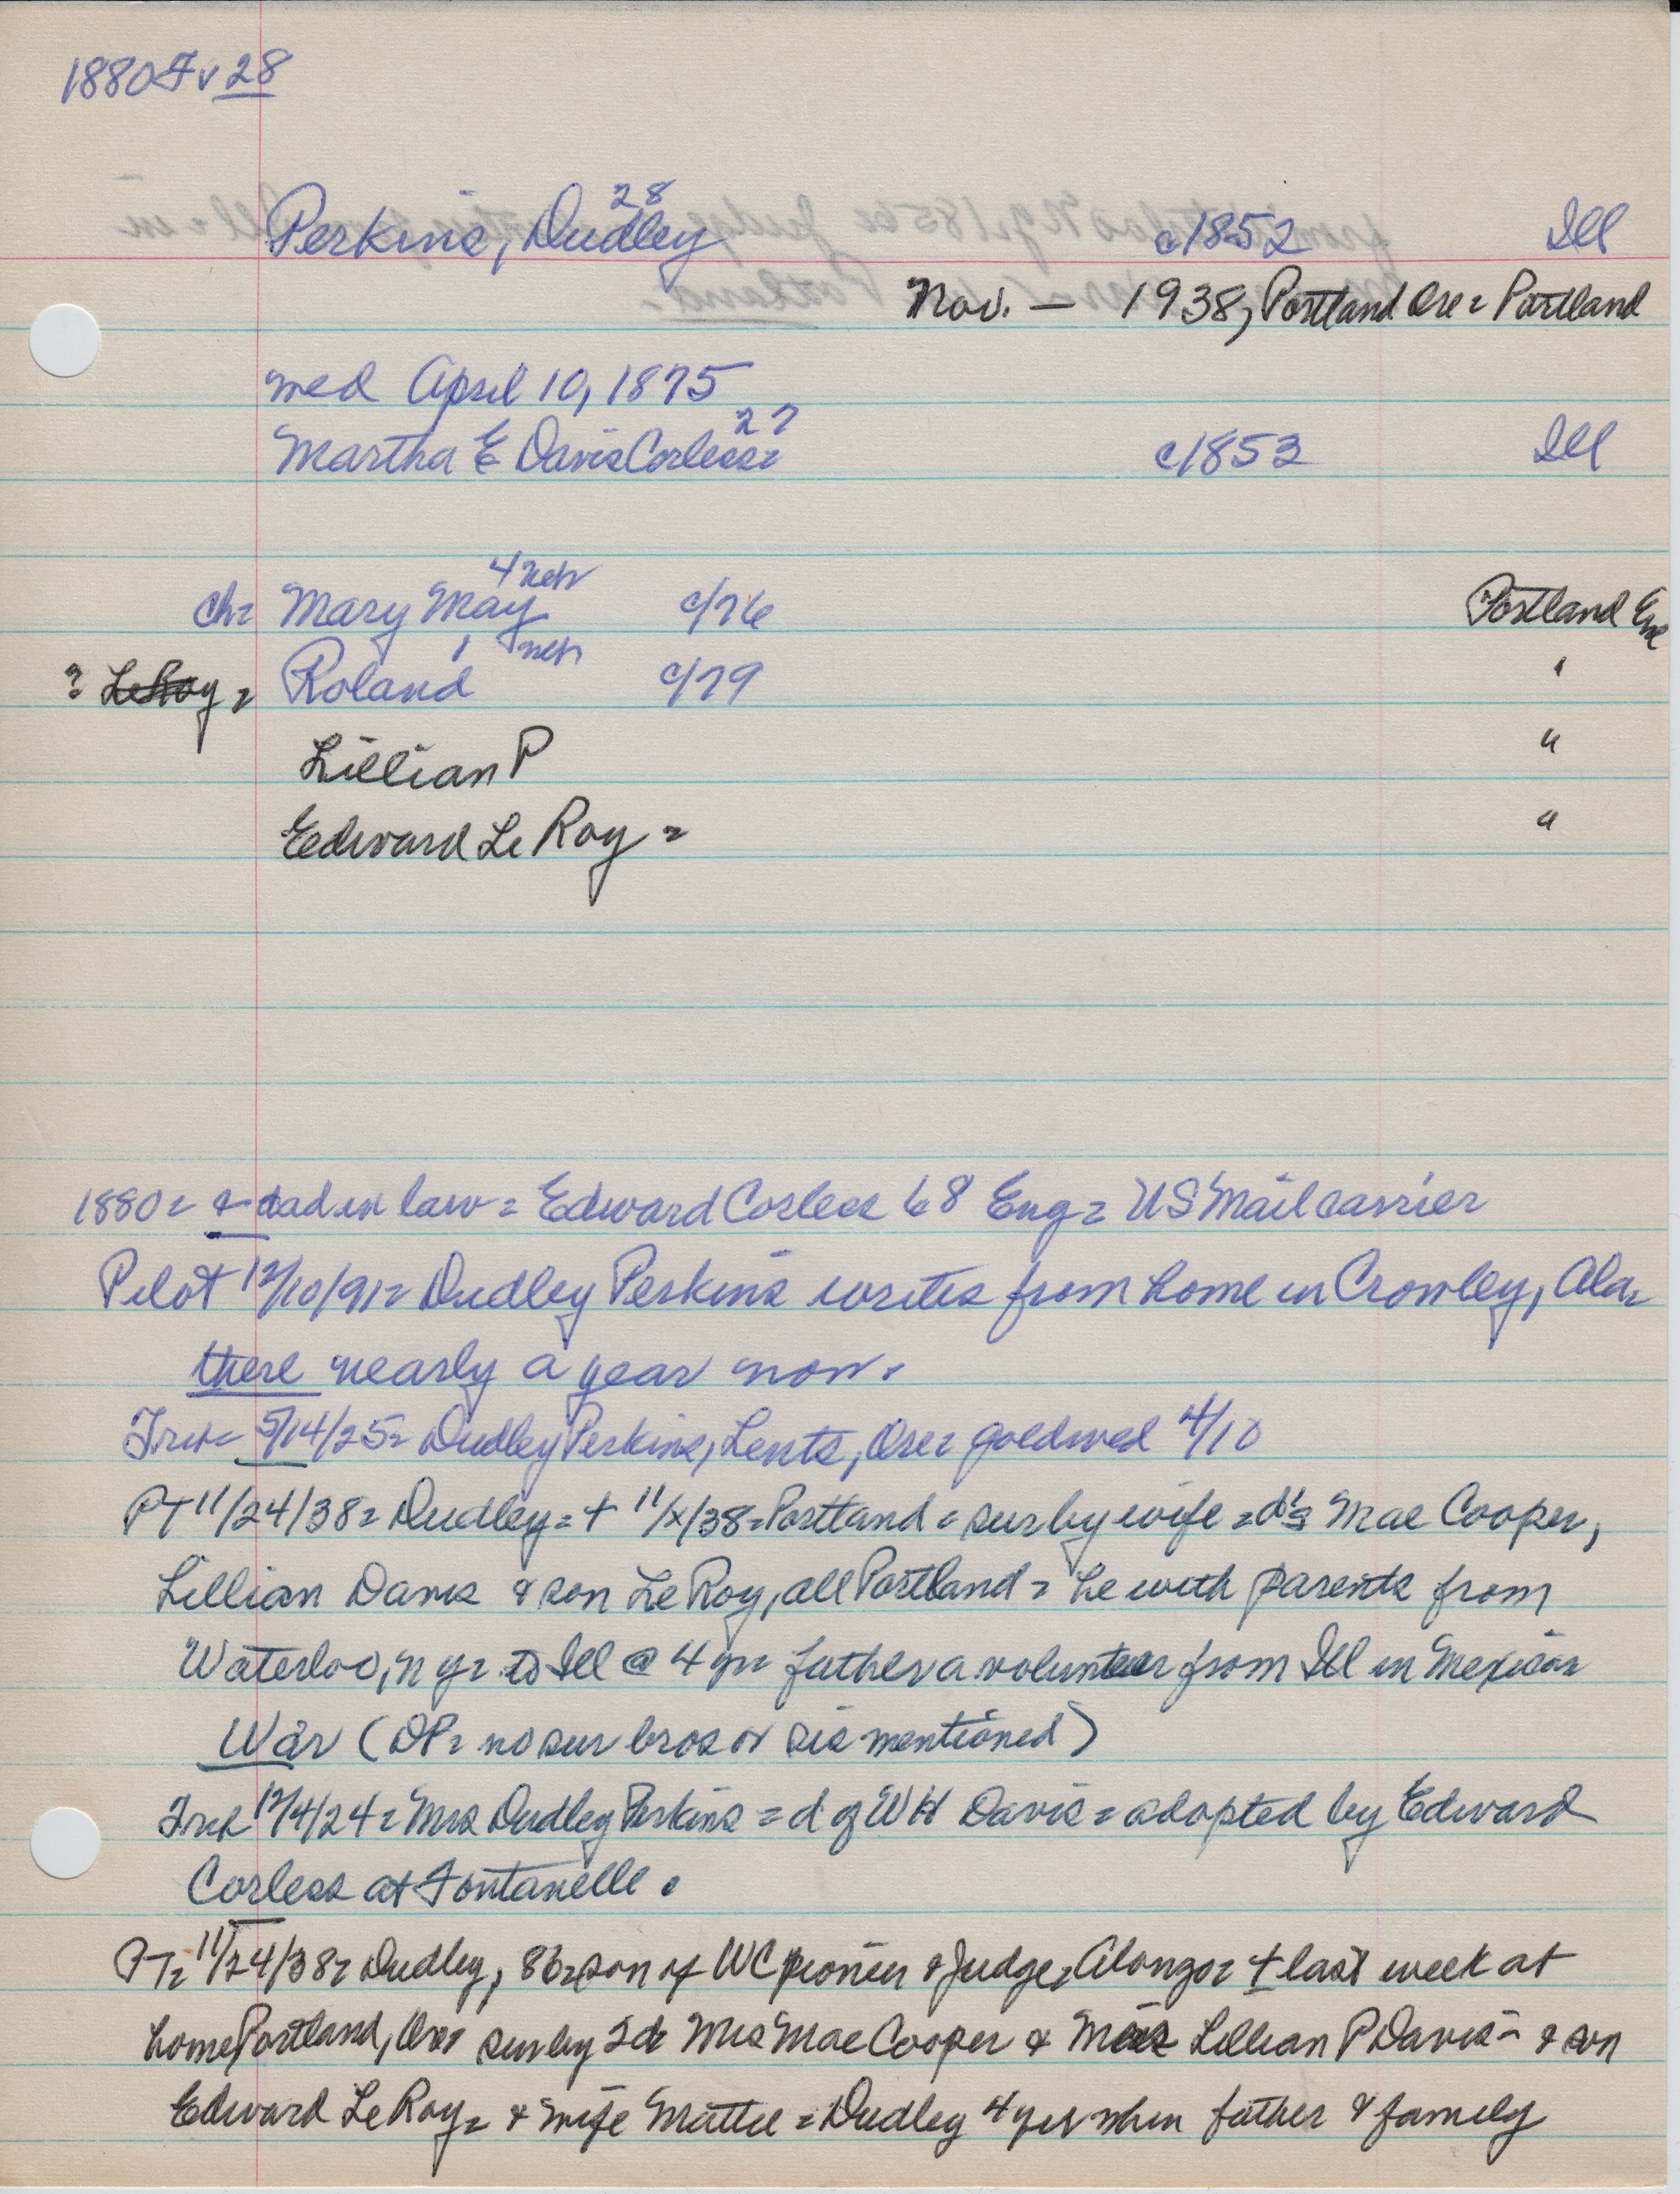 1880 Fv 28
Perkins, Dudley 28 c1852 Ill
Nov. — 1938, Portland Ore = Portland
med April 10, 1875
Martha E Davis Corless = 27 c1853 Ill
ch = Mary May 4 neb c/76 Portland Ore
? LeRoy = Roland 1 neb c/79 "
Lillian P "
Edward Le Roy = "
1880 = & dad in law = Edward Corless 68 Eng = US Mail carrier
Pilot 12/10/91 = Dudley Perkins writes from home in Crowley, Ala =
there nearly a year now.
Trib = 5/14/25 = Dudley Perkins, Lents, Ore = goldwed 4/10
PT 11/24/38 = Dudley = + 11/x/38 = Portland = sur by wife = d's Mae Cooper,
Lillian Davis & son Le Roy, all Portland = he with parents from
Waterloo, N Y = to Ill @ 4 yr = father a volunteer from Ill in Mexican
War (DP = no sur bros or sis mentioned)
Trib 12/4/24 = Mrs Dudley Perkins = d of W H Davis = adopted by Edward
Corless at Fontanelle.
PT = 11/24/38 = Dudley, 86 = son of WC pioneer & Judge, Alonzo = + last week at
home Portland, Ore sur by 2 d Mrs Mae Cooper & Mrs Lillian P Davis = & son
Edward Le Roy = & wife Mattie = Dudley 4 yrs when father & family